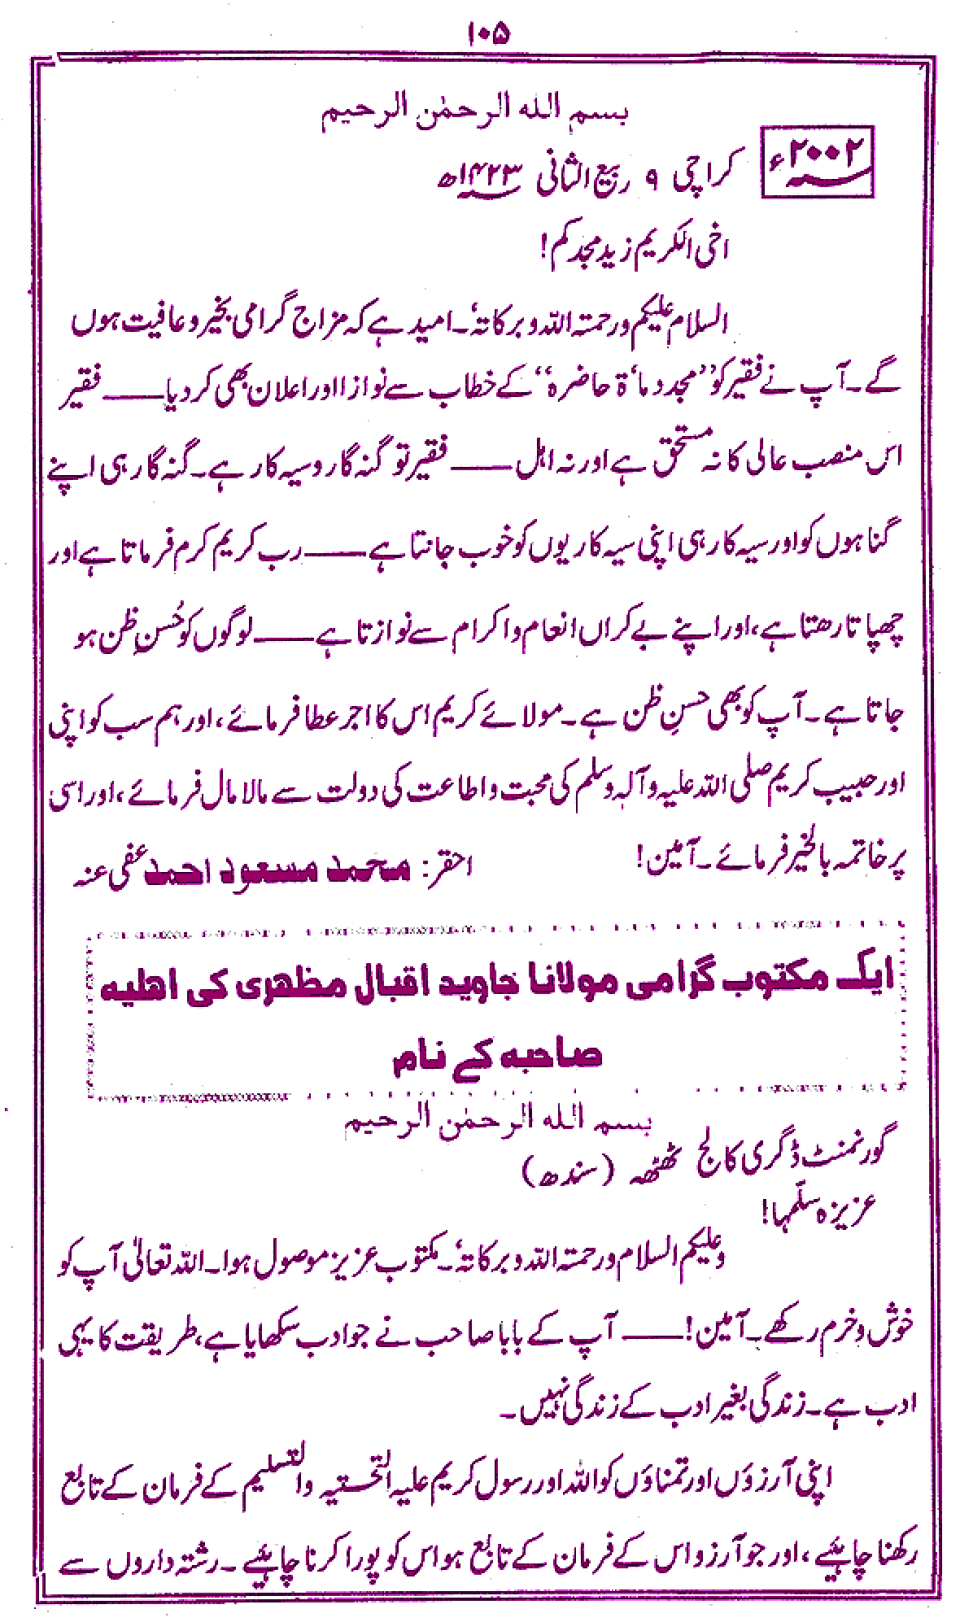 ۱۰۵
بسم الله الرحمٰن الرحيم
۲۰۰۲ء
کراچی ۹ ربیع الثانی ۱۴۲۳ھ
اخی الکریم زید مجدکم!
السلام علیکم ورحمتہ اللہ وبرکاتہٗ۔ امید ہے کہ مزاج گرامی بخیر و عافیت ہوں
گے۔ آپ نے فقیر کو ”مجدد مأۃ حاضرہ“ کے خطاب سے نوازا اور اعلان بھی کر دیا —— فقیر
اس منصب عالی کا نہ مستحق ہے اور نہ اہل —— فقیر تو گنہگار و سیہ کار ہے۔ گنہگار ہی اپنے
گناہوں کو اور سیہ کار ہی اپنی سیہ کاریوں کو خوب جانتا ہے —— رب کریم کرم فرماتا ہے اور
چھپاتا رھتا ہے، اور اپنے بے کراں انعام و اکرام سے نوازتا ہے —— لوگوں کو حُسنِ ظن ہو
جاتا ہے۔ آپ کو بھی حسنِ ظن ہے۔ مولائے کریم اس کا اجر عطا فرمائے، اور ہم سب کو اپنی
اور حبیب کریم صلی اللہ علیہ و آلہ وسلم کی محبت و اطاعت کی دولت سے مالا مال فرمائے، اور اسی
پر خاتمہ بالخیر فرمائے۔ آمین!
احقر: محمد مسعود احمد عفی عنہ
ایک مکتوب گرامی مولانا جاوید اقبال مظھری کی اھلیہ
صاحبہ کے نام
بسم الله الرحمٰن الرحيم
گورنمنٹ ڈگری کالج ٹھٹھہ (سندھ)
عزیزہ سلّمہا!
وعلیکم السلام ورحمتہ اللہ وبرکاتہٗ۔ مکتوب عزیز موصول ہوا۔ اللہ تعالیٰ آپ کو
خوش و خرم رکھے۔ آمین! —— آپ کے بابا صاحب نے جو ادب سکھایا ہے، طریقت کا یہی
ادب ہے۔ زندگی بغیر ادب کے زندگی نہیں۔
اپنی آرزؤں اور تمناؤں کو اللہ اور رسول کریم علیہ التحستیہ والتسلیم کے فرمان کے تابع
رکھنا چاہئیے، اور جو آرزو اس کے فرمان کے تابع ہو اس کو پورا کرنا چاہئیے۔ رشتہ داروں سے